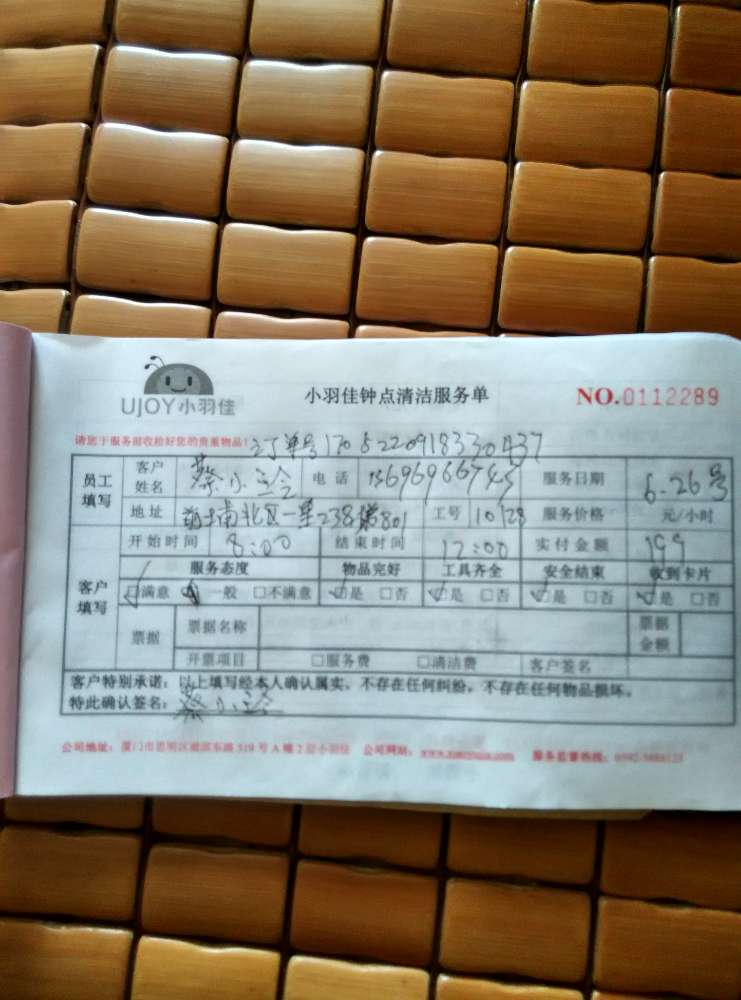 UJOY小羽佳
小羽佳钟点清洁服务单
NO.0112289
请您于服务前收检好您的贵重物品!
订单号1705220918330437
员工填写 客户姓名 蔡小 电话 13696966745 服务日期 6.26号
地址 南北区一里238 801 工号 10128 服务价格 元/小时
客户填写 开始时间 8:00 结束时间 12:00 实付金额 199
服务态度 物品完好 工具齐全 安全结束 收到卡片
□满意 □一般 □不满意 □是 □否 □是 □否 □是 □否 □是 □否
票据 票据名称 票据金额
开票项目 □服务费 □清洁费 客户签名
客户特别承诺：以上填写经本人确认属实。不存在任何纠纷。不存在任何物品损坏。
特此确认签名： 蔡小
公司地址：厦门市思明区 东路319号A幢2层小羽佳 公司网站： 服务监督热线：